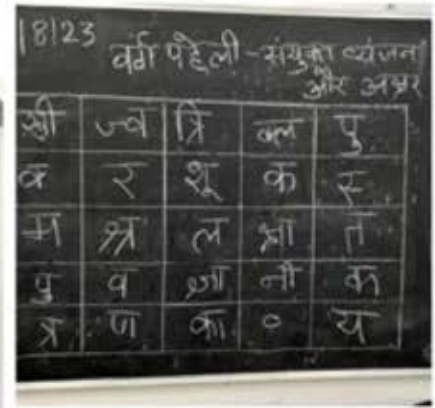 18|23
वर्ग पहेली - संयुक्त व्यंजन
और अक्षर
स्त्री ज्व त्रि क्ल पु
क र शू क स्
म श्र ल क्षा त
पु व ज्ञा नी क
त्र ण का ० य